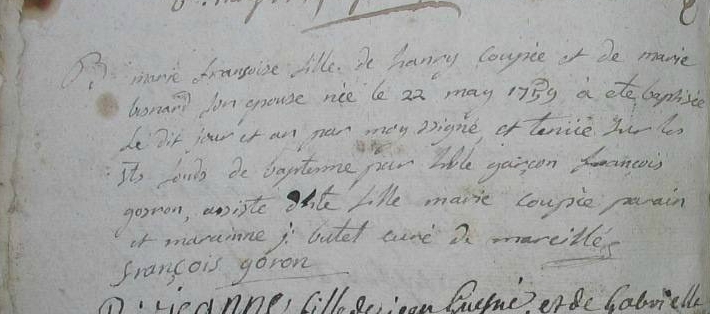 B:
marie françoise fille de hanry Coupée et de marie
bisnard son epouse née le 22 may 1759 à ete baptisée
le dit jour et an par moy ssigné, et tenüe sur les
sts fonds de baptemme par hble garçon françois
goron, assiste dhte fille marie Coupée parain
et marainne j: butet curé de mareillé
françois goron
B: jeanne, fille de jean Guesné, et de Gabrielle